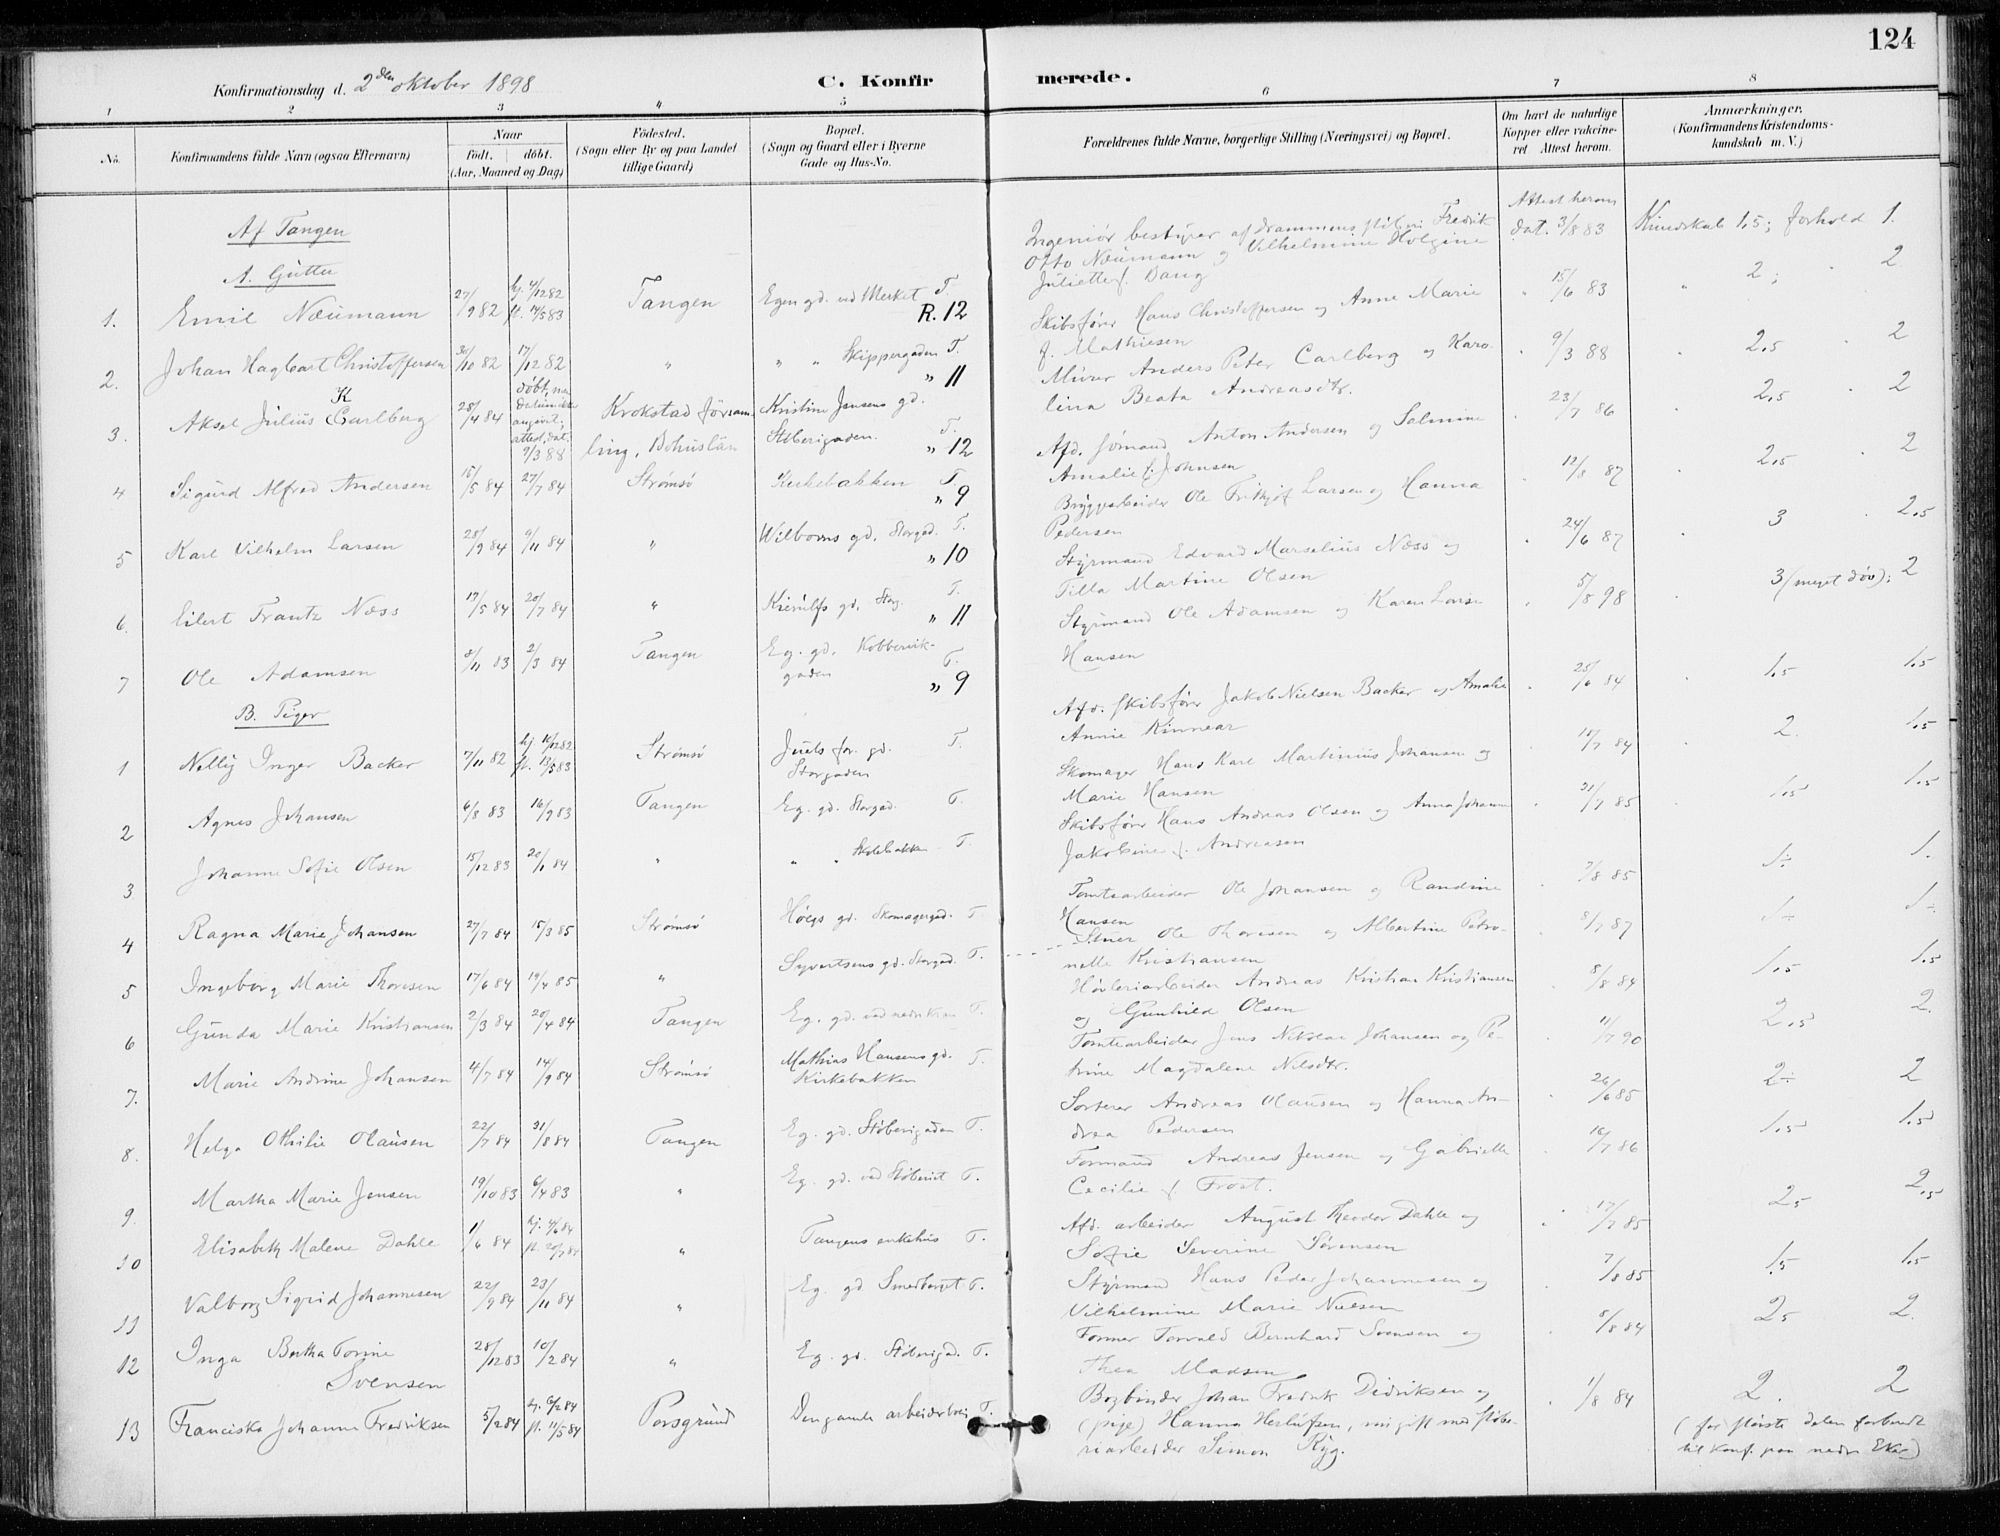 124
Konfirmationsdag d. 2den oktober 1898
C. Konfir merede.
1 2 3 4 5 6 7 8
No.
Konfirmandens fulde Navn (ogsaa Efternavn)
Naar
født. døbt.
(Aar, Maaned og Dag)
Fødested.
(Sogn eller By og paa Landet
tillige Gaard)
Bopæl.
(Sogn og Gaard eller i Byerne
Gade og Hus-No.
Forældrenes fulde Navne, borgerlige Stilling (Næringsvei) og Bopæl.
Om havt de naturlige
Kopper eller vakcine-
ret Attest herom.
Anmærkninger.
(Konfirmandens Kristendoms-
kundskab m. V.)
Af Tangen
A. Gutter
1. Emil Neumann 27/9 82 hj. 4/12 82 Tangen Egen gd. ved Merket T.
fl. 14/5 83 R. 12
Ingeniør bestyrer af Drammens Fredrik
Otto Neumann og Vilhelmine Holgine
Juliette f. Bang
Attest herom
dat. 3/8 83 Kundskab 1,5; forhold 1.
2. Johan Hagbart Christoffersen 30/10 82 17/12 82 " " " Skippergaden T.
" 11
Skibsfører Hans Christoffersen og Anne Marie
f. Mathiesen
" 15/6 83 " 2; " 2
3. Aksel Julius Carlberg 28/4 84 døbt, men
K
datum ikke
angivit;
attest, dat.
9/3 88
Krokstad Försam-
ling, Bohuslän
Kristine Jensens gd.
Støberigaden. T.
" 12
Murer Anders Peter Carlberg og Karo-
lina Beata Andreasdtr.
" 9/3 88 " 2,5 " 2
4 Sigurd Alfred Andersen 15/5 84 27/7 84 Strømsø Kirkebakken T.
" 9
Afd. sømand Anton Andersen og Salmine
Amalie f. Johnsen
" 23/7 86 2,5 " 2
5 Karl Vilhelm Larsen 28/9 84 9/11 84 " Wilborns gd. Storgad. T.
" 10
Bryggearbeider Ole Frithjof Larsen og Hanna
Pedersen
" 12/8 87 " 2,5 2
6. Eilert Frantz Næss 19/5 84 20/7 84 " Kierulfs gd. Storg. T.
" 11
Styrmand Edvard Marselius Næss og
Tilla Martine Olsen
" 24/6 87 " 3 " 2,5
7 Ole Adamsen 8/11 83 2/3 84 Tangen Eg. gd. Kobbervik-
gaden T.
" 9
Styrmand Ole Adamsen og Karen Larsine
Hansen
" 5/8 98 " 3 (meget døv); 2
B. Piger
1 Nelly Inger Backer 7/11 82 hj. 10/12 82 Strømsø Juels for. gd. T.
fl. 13/5 83 Storgaden
Afd. skibsfører Jakob Nielsen Backer og Amalie
Annie Kinnear
" 25/6 84 " 1,5 1,5
2 Agnes Johansen 6/8 83 16/9 83 Tangen Eg. gd. Storgad. T.
Skomager Hans Karl Martinius Johansen og
Marie Hansen
" 18/7 84 " 2. 1,5
3 Johanne Sofie Olsen 15/12 83 20/1 84 " " " Skolebakken T.
Skibsfører Hans Andreas Olsen og Anna Johanne
Jakobine f. Andreasen
" 31/7 85 1,5 1,5
4 Ragna Marie Johansen 27/7 84 15/3 85 Strømsø Høegs gd. Skomagergad. T.
Tomtearbeider Ole Johansen og Randine
Hansen
" 7/8 85 1÷ 1.
5 Ingeborg Marie Thoresen 17/6 84 19/4 85 " Syvertsens gd. Storgad. T.
Stuer Ole Thoresen og Albertine Petro-
nelle Kristiansen
8/7 87 1÷ 1÷
6 Gunda Marie Kristiansen 2/3 84 20/4 84 Tangen Eg. gd. ved T.
Høvleriarbeider Andreas Kristian Kristiansen
og Gunhild Olsen
" 8/8 84 1,5 1,5
7. Marie Andrine Johansen 4/7 84 14/9 84 Strømsø Mathias Hansens gd. T.
Kirkebakken
Tomtearbeider Jens Nikolai Johansen og Pe-
trine Magdalene Nilsdtr.
" 11/7 90 2,5 2.
8. Helga Othilie Olausen 22/7 84 31/8 84 Tangen Eg. gd. Støberigaden T.
Sorterer Andreas Olausen og Hanna An-
drea Pedersen
" 26/6 85 2÷ 2
9. Martha Marie Jensen 19/10 83 6/4 83 " Eg. gd. ved Støberiet T.
Formand Andreas Jensen og Gabrielle
Cecilie f. Frost.
" 16/7 86 1,5 1,5
10 Elisabeth Malene Dahle 1/6 84 hj. 4/6 84 " Tangens enkehus T.
fl. 20/7 84
Afd. arbeider August Theodor Dahle og
Sofie Severine Sørensen
" 17/7 85 25 2,5
11 Valborg Sigrid Johannesen 22/9 84 23/11 84 " Eg. gd Smertorget T.
Styrmand Hans Peder Johannesen og
Vilhelmine Marie Nielsen
" 7/8 85 1,5 1,5
12 Inga Bertha Torine
Svensen
28/12 83 10/2 84 " Eg. gd. Støberigad. T.
Former Torvald Bernhard Svensen og
Thea Madsen
" 8/8 84 25 2.
13 Franciska Johanne Fredriksen 5/2 84 hj. 6/2 84 Porsgrund Den gamle arbeiderbrei T.
fl. 11/5 84
Bogbinder Johan Fredrik Didriksen og
(pige) Hanna Herlufsen, nu gift med støbe-
riarbeider Simon Ryg.
" 1/8 84 2. 2
(for største delen forberedt
til Konf. paa nedre Eker)